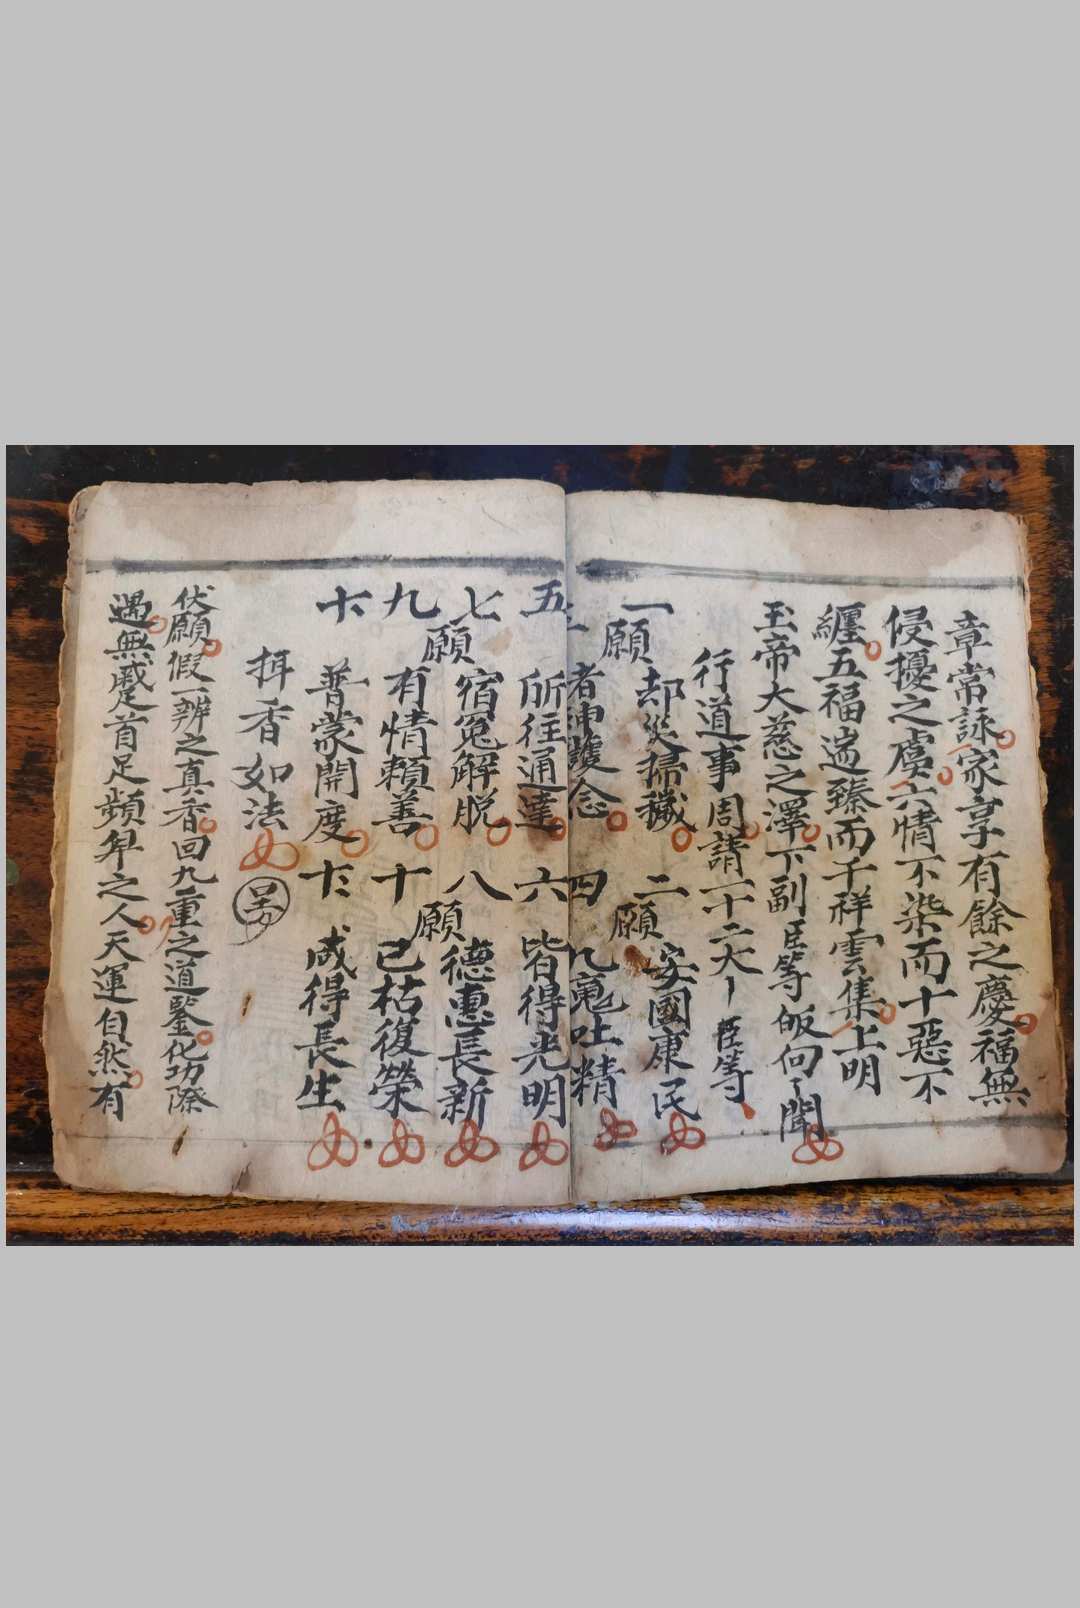 章常詠家享有餘之慶福無
侵擾之虞六情不染而十惡不
纏五福遄臻而千祥雲集上明
玉帝大慈之澤下副臣等皈向聞
行道事周請十二大臣等
一願却災掃穢二願安國康民
者神護念四九竅吐精
五所往通達六皆得光明
七願宿冤解脫八願德惠長新
九有情賴善十已枯復榮
普蒙開度咸得長生
拜香如法
伏願假一辨之真香回九重之道鑒化功際
遇無蹙首足頻年之人天運自然有